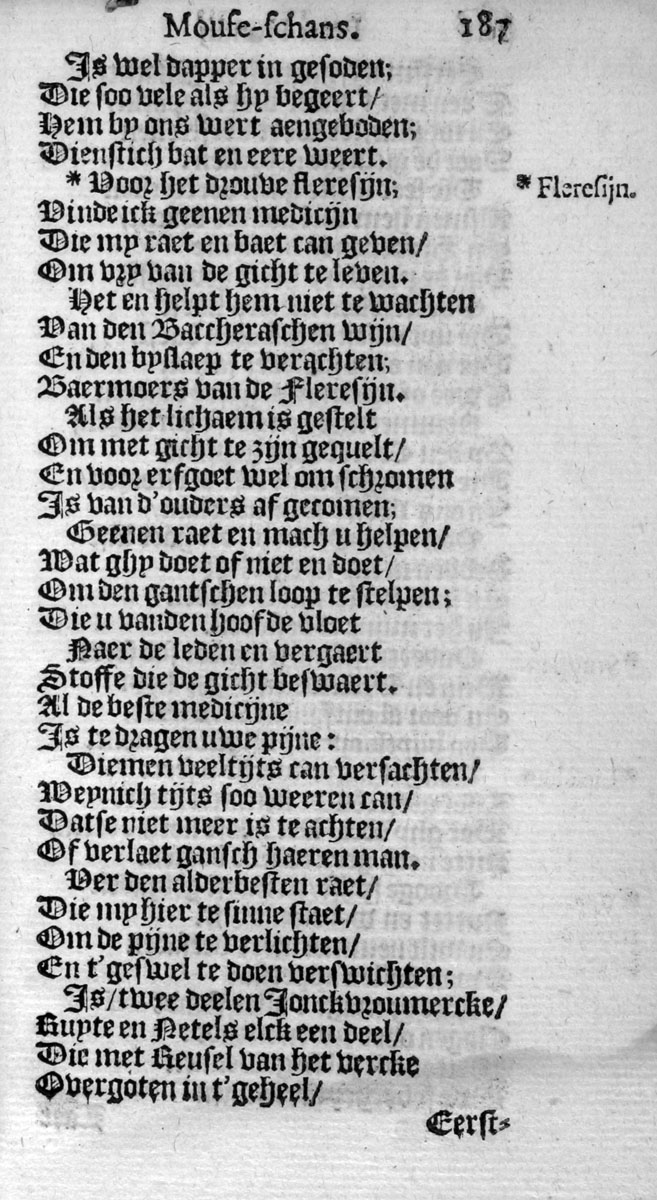 Mouſe-ſchans. 187
Is wel dapper in geſoden;
Die ſoo vele als hy begeert/
Hem by ons wert aengeboden;
Dienſtich bat en eere weert.
* Voor het drouve fleresijn; * Flereſijn.
Vinde ick geenen medicijn
Die my raet en baet can geven/
Om vry van de gicht te leven.
Het en helpt hem niet te wachten
Van den Baccheraſchen wijn/
En den byſlaep te verachten;
Baermoers van de Flereſijn.
Als het lichaem is geſtelt
Om met gicht te zijn gequelt/
En voor erfgoet wel om ſchromen
Is van d'ouders af gecomen;
Geenen raet en mach u helpen/
Wat ghy doet of niet en doet/
Om den gantſchen loop te ſtelpen;
Die u vanden hoofde vloet
Naer de leden en vergaert
Stoffe die de gicht beſwaert.
Al de beſte medicijne
Is te dragen uwe pijne:
Diemen veeltijts can verſachten/
Weynich tijts ſoo weeren can/
Datſe niet meer is te achten/
Of verlaet ganſch haeren man.
Ver den alderbeſten raet/
Die my hier te ſinne ſtaet/
Om de pijne te verlichten/
En t'geſwel te doen verſwichten;
Is/twee deelen Jonckvroumercke/
Ruyte en Netels elck een deel/
Die met Reuſel van het vercke
Overgoten in t'geheel/
Eerſt-